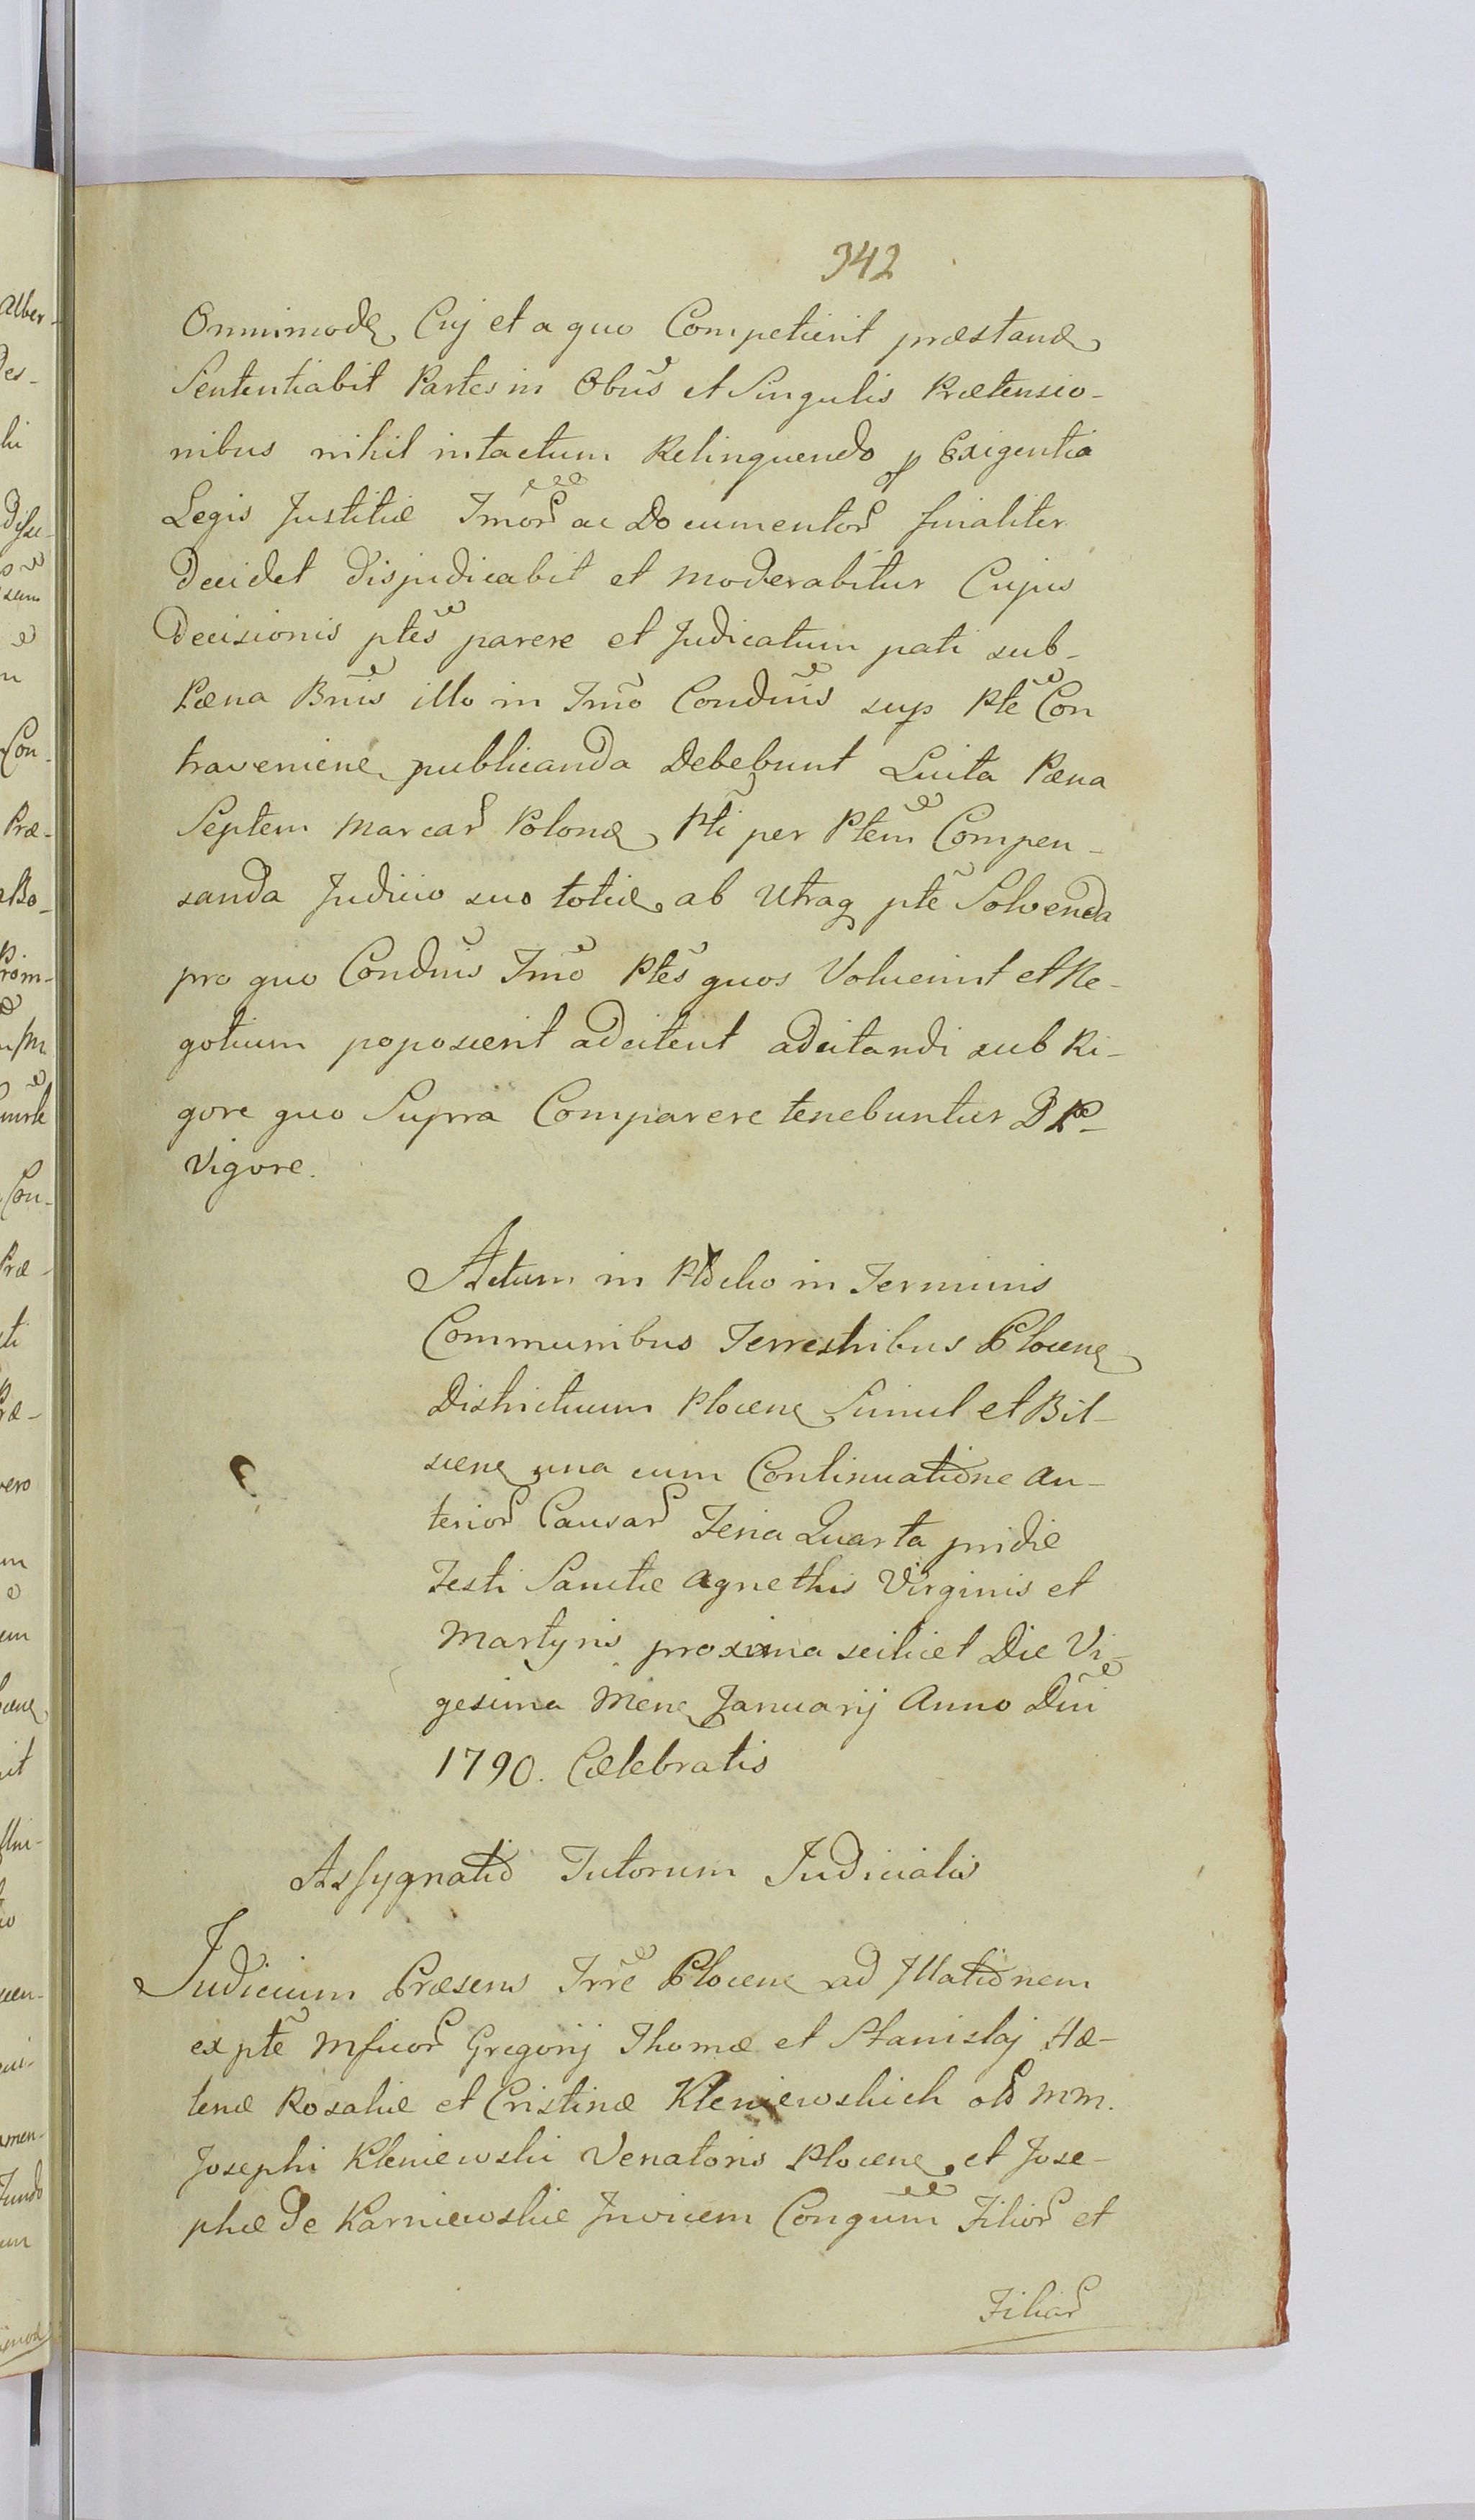 342
Omnimode Cuj et a quo Competierit præstanæ
Sententiabit Partes in Obus et Singulis Prætensio-
nibus nihil intactum Relinquendo p Exigentia
Legis Justitiæ Tmor ac Documentor finaliter
Decidet disjudicabit et Moderabitur Cujus
Decisionis ptes parere et Judicatum pati sub-
Pœna Bnis illo in Tmo Condnis sup Pte Con
traveniene publicanda Debebunt Luita Pœna
Septem Marcar Polonæ Pti per Ptem Compen-
sanda Judicio suo totiæ ab Utraq pte Solvenda
pro quo Condnis Tmo Ptes quos Voluerint et Ne-
gotium poposcerit adcitent adcitandi sub Ri-
gore quo Supra Comparere tenebuntur D P
Vigore.
Actum in Plocko in Terminis
Communibus Terrestribus Plocen
Districtuum Plocen Simul et Bil-
scen una cum Continuatione an-
terior Causar Feria Quarta pridie
Festi Sanctæ Agnethis Virginis et
Martyris proxima scilicet Die Vi-
gesima Men Januarij Anno Dni
1790. Cælebratis
Assygnatio Tutorum Judicialis
Judicium Præsens Trre Plocen ad Illationem
ex pte Mficor Gregorij Thomæ et Stanislaj He-
lenæ Rosaliæ et Cristinæ Kleniewskich old MM.
Josephi Kleniewski Venatoris Plocen et Jose-
phæ de Karniewskie Invicem Congum Filior et
Filiar